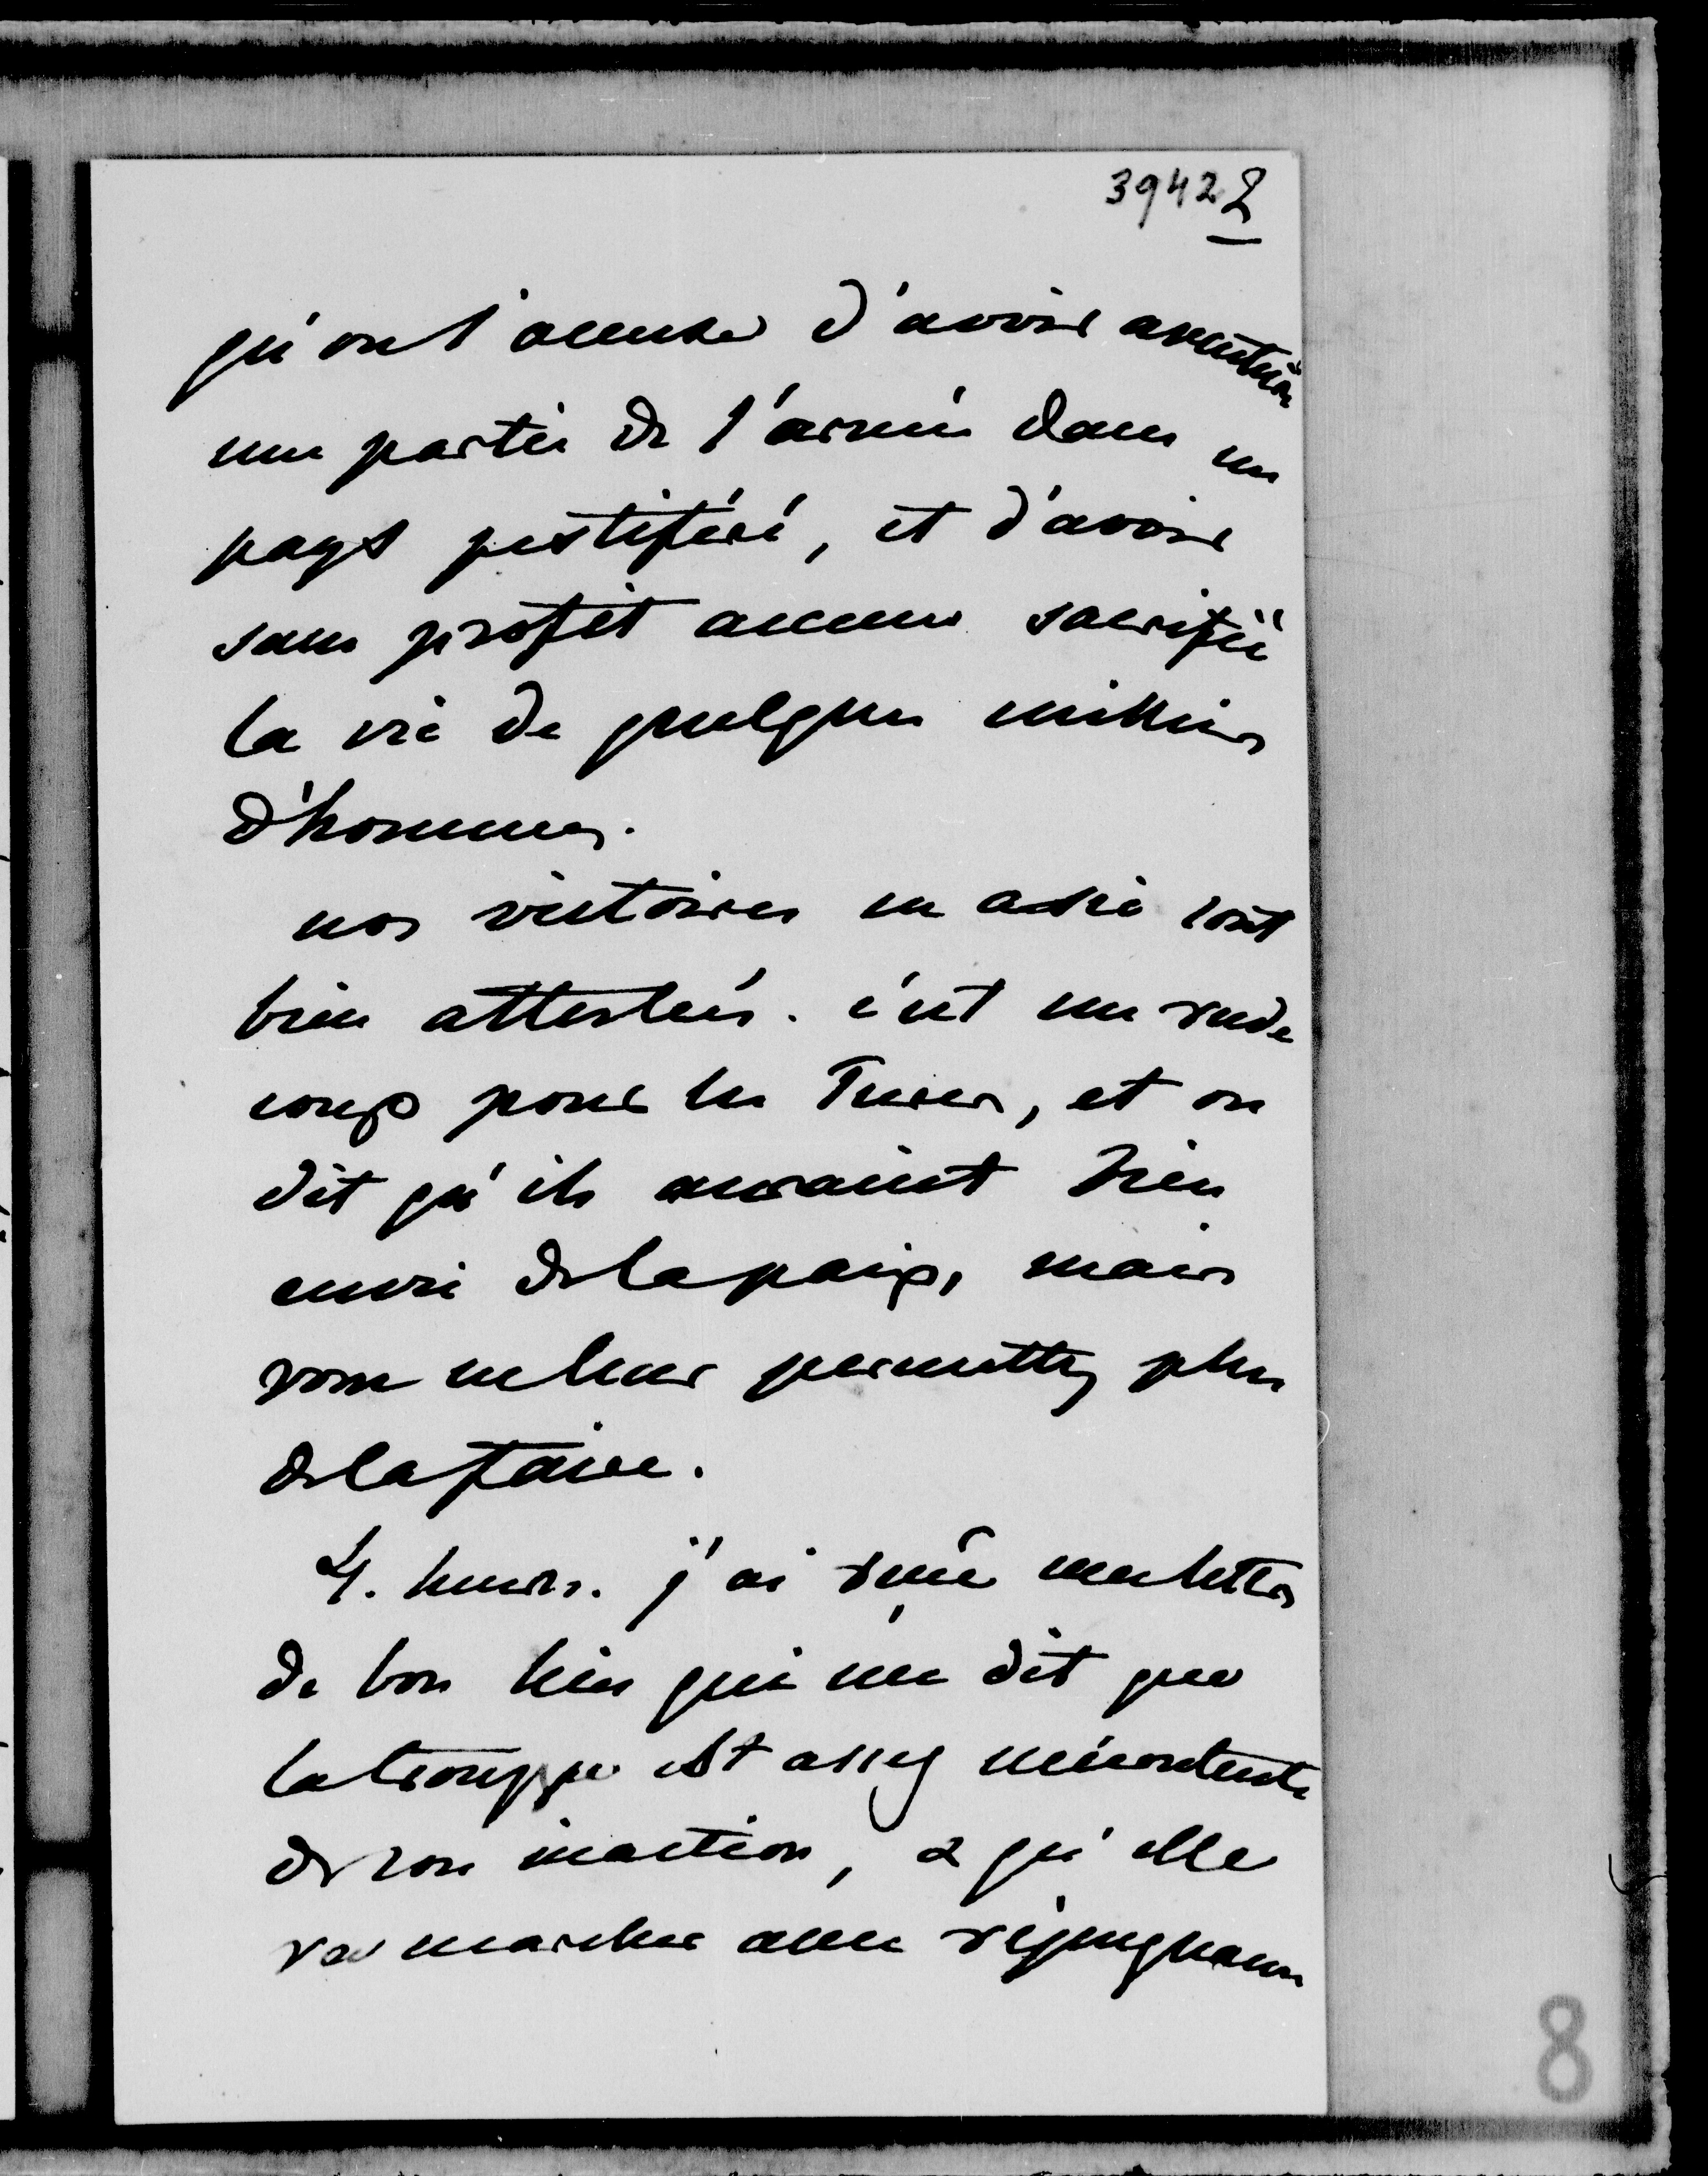 39422
qu'on l'accuse d'avoir aventuré
une partie de l'armée dans un
pays pestiféré, et d'avoir
sans profit aucun sacrifié
la vie de quelques milliers
d'hommes.
nos victoires en asie sont
bien attestées. c'est un rude
coup pour les Turcs, et on
dit qu'ils auraient bien
envie de la paix, mais
vous ne leur permettez plus
de la faire.
4. heures. j'ai reçu une lettre
de bon lieu qui me dit que
la trouppe est assez mécontente
de son inaction, & qu'elle
va marcher avec répugnance
8